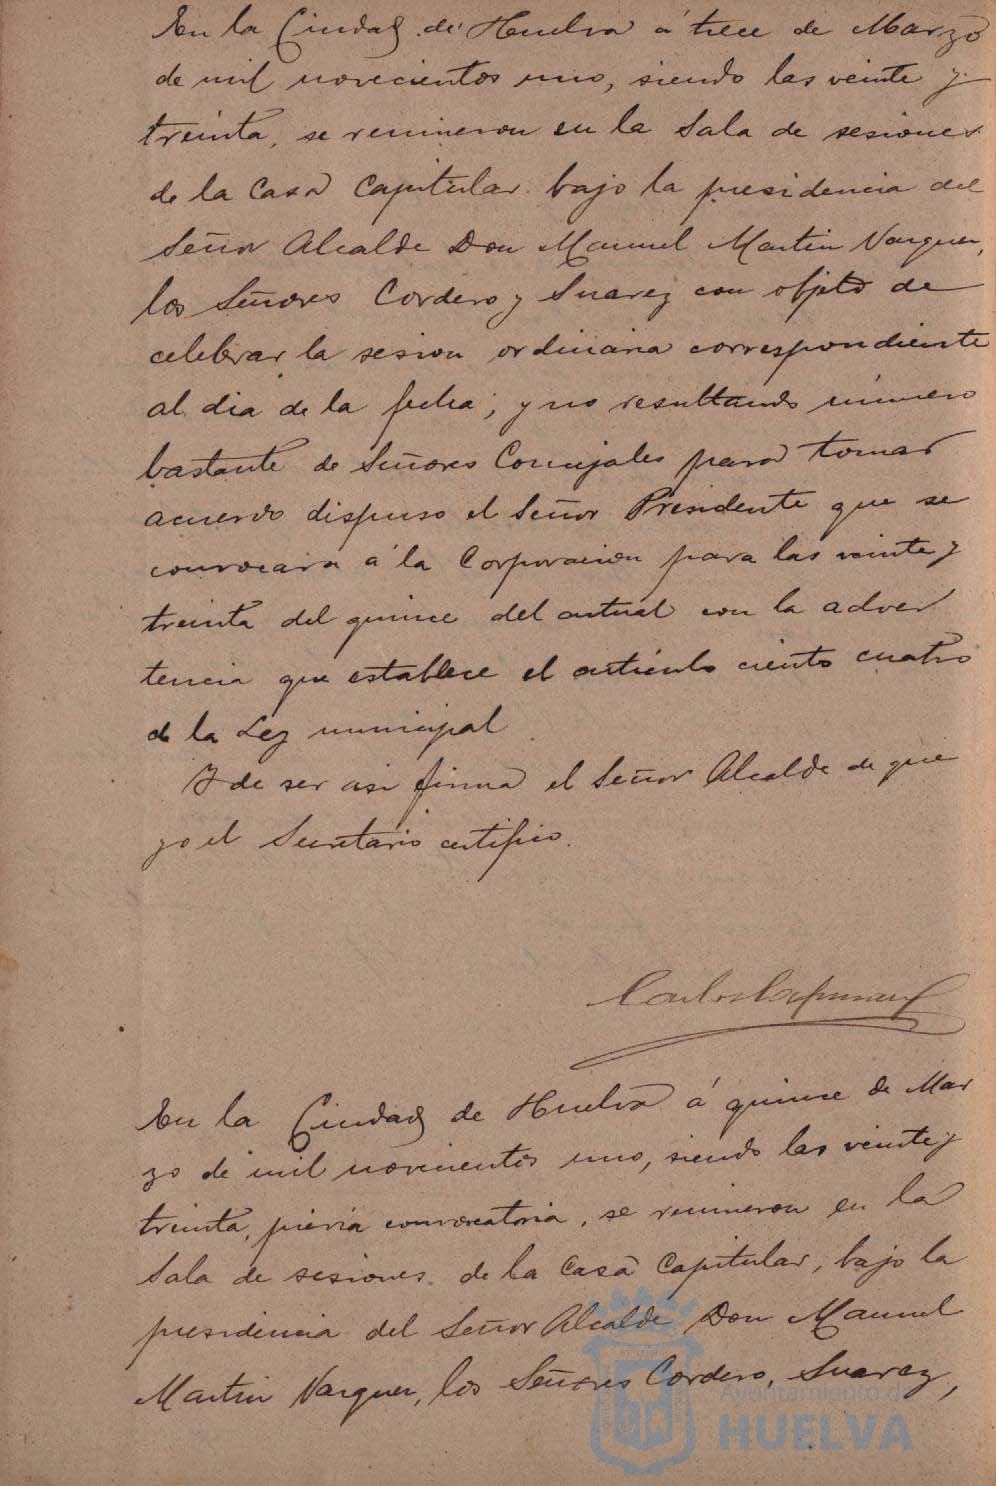 En la Ciudad de Huelva á trece de Marzo
de mil novecientos uno, siendo las veinte y
treinta, se reunieron en la Sala de sesiones
de la Casa Capitular bajo la presidencia del
Señor Alcalde Don Manuel Martin Vazquez,
los Señores Cordero y Suarez con objeto de
celebrar la sesion ordinaria correspondiente
al dia de la fecha; y no resultando número
bastante de Señores Concejales para tomar
acuerdo dispuso el Señor Presidente que se
convocara á la Corporacion para las veinte y
treinta del quince del actual con la adver
tencia que establece el articulo ciento cuatro
de la Ley municipal.
Y de ser asi firma el Señor Alcalde de que
yo el Secretario certifico.
En la Ciudad de Huelva á quince de Mar
zo de mil novecientos uno, siendo las veinte y
treinta, prévia convocatoria, se reunieron en la
Sala de sesiones de la Casa Capitular, bajo la
presidencia del Señor Alcalde Don Manuel
Martin Vazquez, los Señores Cordero, Suarez,
Ayuntamiento de
HUELVA